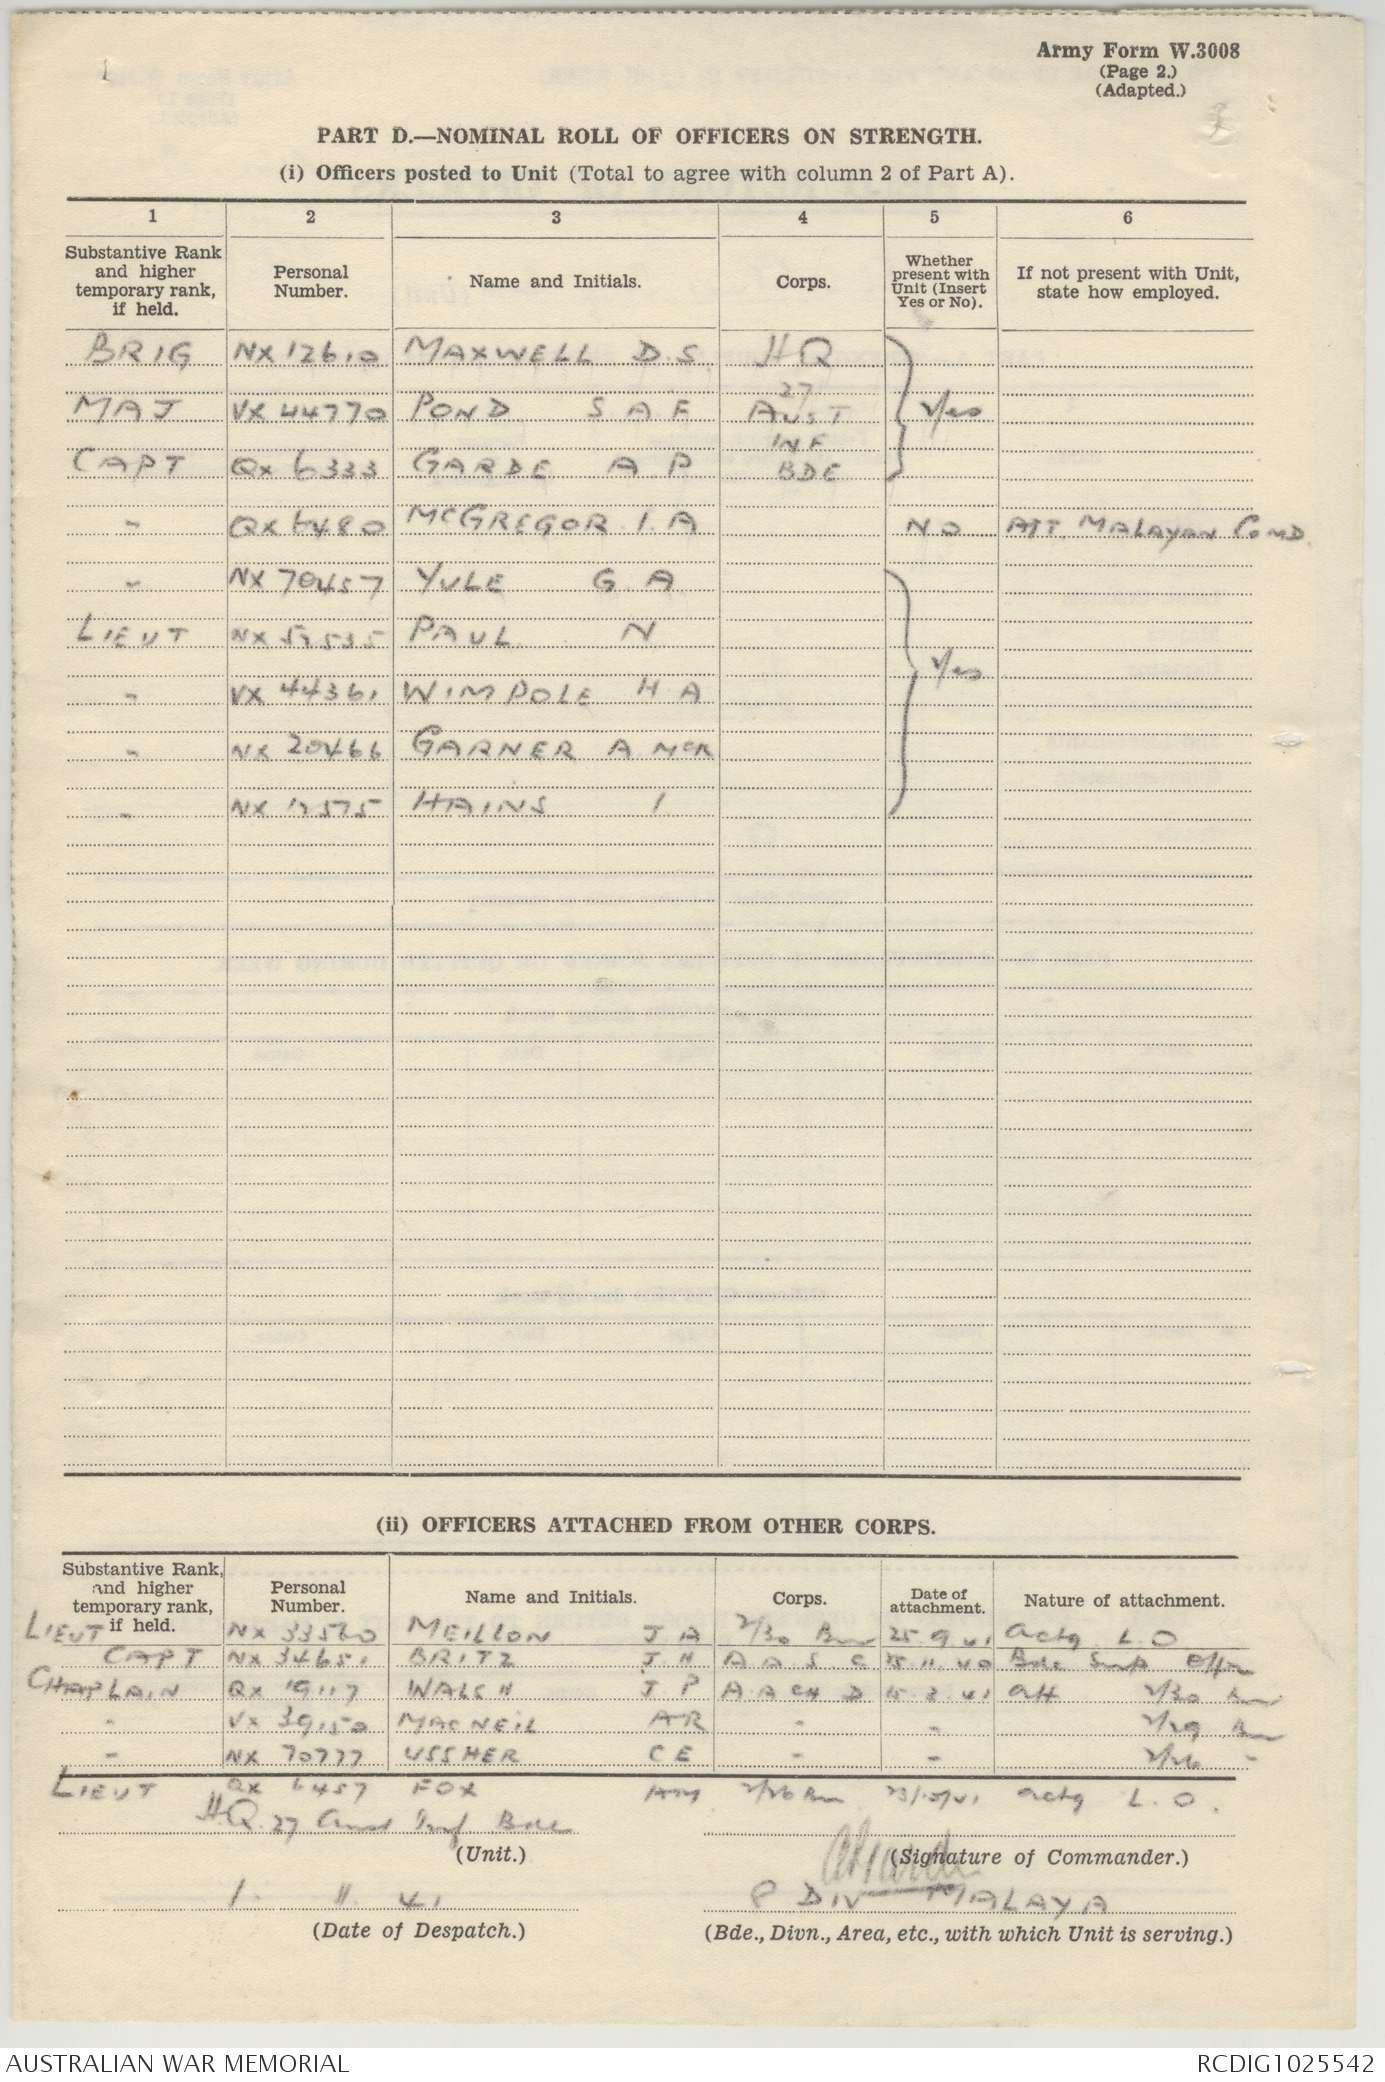 Army Form W.3008
(Page 2.)
(Adapted.)
PART D.—NOMINAL ROLL OF OFFICERS ON STRENGTH.
(i) Officers posted to Unit (Total to agree with column 2 of Part A).
1 2 3 4 5 6
Substantive Rank and higher temporary rank, if held. Personal Number. Name and Initials. Corps. Whether present with Unit (Insert Yes or No). If not present with Unit, state how employed.
BRIG NX 12610 MAXWELL D.S. HQ
27
MAJ VX 44770 POND S A F AUST Yes
INF
CAPT QX 6333 GARDE A P BDE
" QX 6480 McGREGOR I. A NO ATT. MALAYAN COMD.
" NX 70457 YULE G A
LIEUT NX 52535 PAUL N
" VX 44361 WIMPOLE H A Yes
" NX 20466 GARNER A McK
" NX 12575 HAINS I
(ii) OFFICERS ATTACHED FROM OTHER CORPS.
Substantive Rank, and higher temporary rank, if held. Personal Number. Name and Initials. Corps. Date of attachment. Nature of attachment.
LIEUT NX 33560 MEILLON J A 2/30 Bn 25.9.41 actg L O
CAPT NX 34651 BRITZ J. H A A S C 15.11.40 Bde Sup Offr
CHAPLAIN QX 19117 WALSH J P A A CH D 15.3.41 att 2/30 Bn
" VX 39150 MACNEIL A R " " 2/29 Bn
" NX 70777 USSHER C E " " 2/26 "
LIEUT QX 6457 FOX 2/26 Bn 23/10/41 actg L. O.
HQ. 27 Aust Inf Bde
(Unit.) (Signature of Commander.)
1. 11. 41 8 DIV MALAYA
(Date of Despatch.) (Bde., Divn., Area, etc., with which Unit is serving.)
AUSTRALIAN WAR MEMORIAL RCDIG1025542